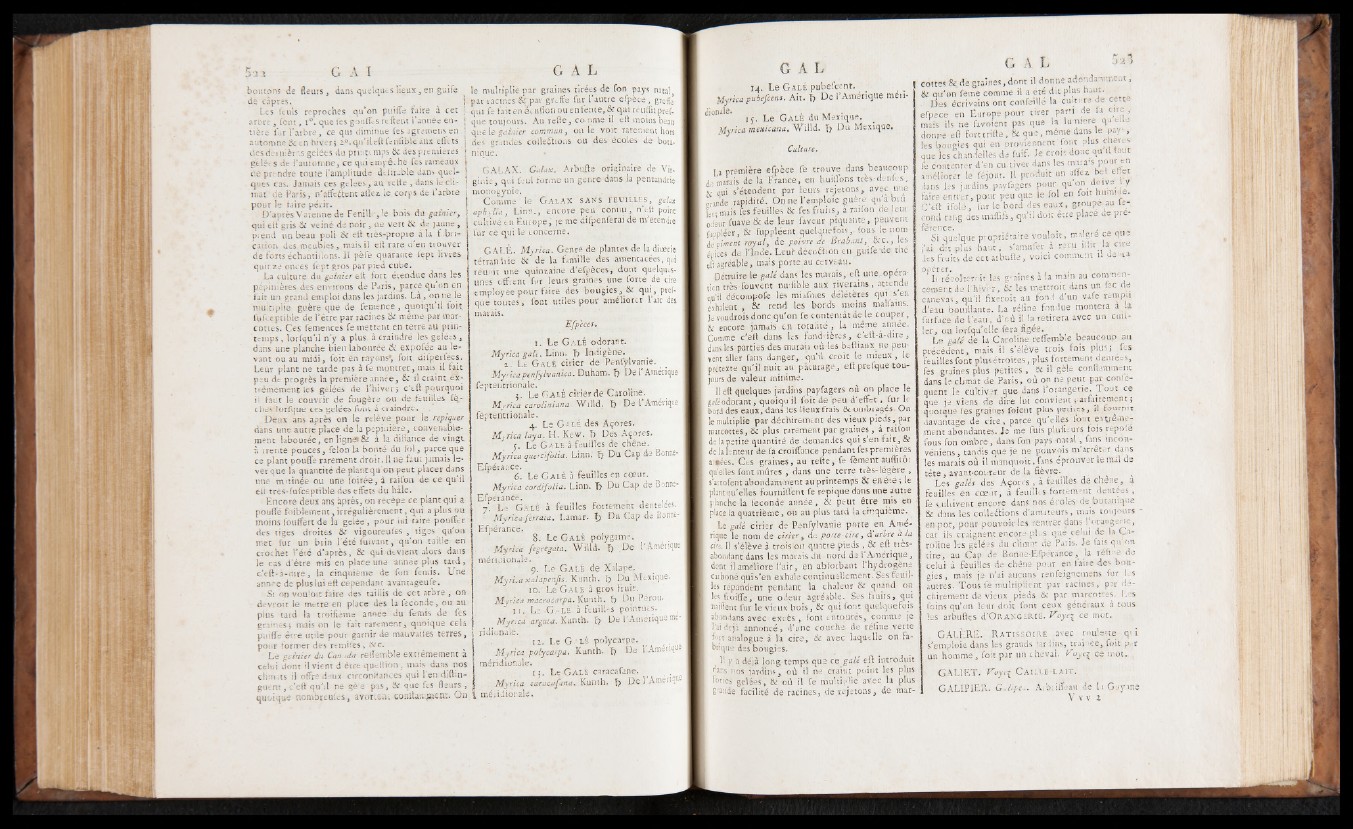 522 G A I
boutons de fleurs, dans quelques lieux, en guiſe
de câpres.
Les ſeuls reproches qu'on puiſſe faire à cet
arbre, ſont, 1°. que ſes gouſſes reſtent l'année en-
tière ſur l'arbre, ce qui diminue ſes agrémens en
automne & en hiver; 2°. qu'il eſt ſenſible aux effets
des dernières gelées du printemps & des premières
gelées de l'automne, ce qui empêche ſes rameaux
de prendre toute l'amplitude deſirable dans quel-
ques cas. Jamais ces gelées, au reſte, dans le cli-
mat de Paris, n'affectent aſſez le corps de l'arbre
pour le faire périr.
D'après Varenne de Fenille, le bois du gaînier,
qui eſt gris & veiné de noir, de vert & de jaune,
prend un beau poli & eſt très-propre à la fabri-
cation des meubles, mais il eſt rare d'en trouver
de forts échantillons. Il pèſe quarante-ſept livres
quinze onces ſept gros par pied cube.
La culture du gaînier eſt fort étendue dans les
pépinières des environs de Paris, parce qu'on en
fait un grand emploi dans les jardins. Là, on ne le
multiplie guère que de ſemence, quoiqu'il ſoit
ſuſceptible de l'être par racines & même par mar-
cottes. Ces ſemences ſe mettent en terre au prin-
temps, lorſqu'il n'y a plus à craindre les gelées,
dans une planche bien labourée & expoſée au le-
vant ou au midi, ſoit en rayons, ſoit diſperſées.
Leur plant ne tarde pas à ſe montrer, mais il fait
peu de progrès la première année, & il craint ex-
trêmement les gelées de l'hiver; c'eſt pourquoi
il faut le couvrir de fougère ou de feuilles ſè-
ches lorſque ces gelées ſont à craindre.
Deux ans après on le relève pour le repiquer
dans une autre place de la pépinière, convenable-
ment labourée, en lignes & à la diſtance de vingt
à trente pouces, ſelon la bonté du ſol, parce que
ce plant pouſſe rarement droit. Il ne faut jamais le-
ver que la quantité de plant qu'on peut placer dans
une matinée ou une ſoirée, à raiſon de ce qu'il
eſt très-ſuſceptible des effets du hâle.
Encore deux ans après, on recèpe ce plant qui a
pouſſé foiblement, irrégulièrement, qui a plus ou
moins ſouffert de la gelée, pour lui faire pouſſer
des tiges droites & vigoureuſes, tiges qu'on
met ſur un brin l'été ſuivant, qu'on taille en
crochet l'été d'après, & qui devient alors dans
le cas d'être mis en place une année plus tard,
c'eſt-à-dire, la cinquième de ſon ſemis. Une
année de plus lui eſt cependant avantageuſe.
Si on vouloit faire des taillis de cet arbre, on
devroit le mettre en place dès la ſeconde, ou au
plus tard la troiſième année du ſemis de ſes
graines; mais on le fait rarement, quoique cela
puiſſe être utile pour garnir de mauvaiſes terres,
pour former des remiſes, &c.
Le gaînier du Canada reſſemble extrêmement à
celui dont il vient d'être queſtion, mais dans nos
climats il offre deux circonſtances qui l'en diſtin-
guent, c'eſt qu'il ne gèle pas, & que ſes fleurs,
quoique nombreuſes, avortent conſtamment. On
G A L
le multiplie par graines tirées de ſon pays natal,
par racines & par greffe ſur l'autre eſpèce, greffe
qui ſe fait en écuſſon ou en fente, & qui réuſſit preſ-
que toujours. Au reſte, comme il eſt moins beau
que le gaînier commun, on le voit rarement hors
des grandes collections ou des écoles de bota-
nique.
GALAX. Galax. Arbuſte originaire de Vir-
ginie, qui ſeul forme un genre dans la pentandrie
monogynie.
Comme le GALAX SANS FEUILLES, galax
aphylla, Linn., encore peu connu, n'eſt point
cultivé en Europe, je me diſpenſerai de m'étendre
ſur ce qui le concerne.
GALÉ. Myrica. Genre de plantes de la diœcie
tétrandrie & de la famille des amentacées, qui
réunit une quinzaine d'eſpèces, dont quelques-
unes offrent ſur leurs graines une ſorte de cire
employée pour faire des bougies, & qui, preſ-
que toutes, ſont utiles pour améliorer l'air des
marais.
Eſpèces.
1. Le GALÉ odorant.
Myrica gale. Linn. ♄ Indigène.
2. Le GALÉ cirier de Penſylvanie.
Myrica penſylvanica. Duham. ♄ De l'Amérique
ſeptentrionale.
3. Le GALÉ cirier de Caroline.
Myrica caroliniana. Willd. ♄ De l'Amérique
ſeptentrionale.
4. Le GALÉ des Açores.
Myrica faya. H. Kew. ♄ Des Açores.
5. Le GALÉ à feuilles de chêne.
Myrica quercifolia. Linn. ♄ Du Cap de Bonne-
Eſpérance.
6. Le GALÉ à feuilles en cœur.
Myrica cordifolia. Linn. ♄ Du Cap de Bonne-
Eſpérance.
7. Le GALÉ à feuilles fortement dentelées.
Myrica ſerrata. Lamar. ♄ Du Cap de Bonne-
Eſpérance.
8. Le GALÉ polygame.
Myrica ſegregata. Willd. ♄ De l'Amérique
méridionale.
9. Le GALÉ de Xalape.
Myrica xalapenſis. Kunth. ♄ Du Mexique.
10. Le GALÉ à gros fruit.
Myrica macrocarpa. Kunth. ♄ Du Pérou.
11. Le GALÉ à feuilles pointues.
Myrica arguta. Kunth. ♄ De l'Amérique mé-
ridionale.
12. Le GALÉ polycarpe.
Myrica polycarpa. Kunth. ♄ De l'Amérique
méridionale.
13. Le GALÉ caracaſane.
Myrica caracaſana. Kunth. ♄ De l'Amérique
méridionale.
G A L
14. Le GALÉ pubeſcent.
Myrica pubeſcens. Ait. ♄ De l'Amérique méri-
dionale.
15. Le GALÉ du Mexique.
Myrica mexicana. Willd. ♄ Du Mexique.
Culture.
La première eſpèce ſe trouve dans beaucoup
de marais de la France, en buiſſons très-denſes,
& qui s'étendent par leurs rejetons, avec une
grande rapidité. On ne l'emploie guère qu'à brû-
ler; mais ſes feuilles & ſes fruits, à raiſon de leur
odeur ſuave & de leur ſaveur piquante, peuvent
ſuppléer, & ſuppléent quelquefois, ſous le nom
de piment royal, de poivre de Brabant, &c., les
épices de l'Inde. Leur décoction en guiſe de thé
eſt agréable, mais porte au cerveau.
Détruire le galé dans les marais, eſt une opéra-
tion très ſouvent nuiſible aux riverains, attendu
qu'il décompoſe les miaſmes délétères qui s'en
exhalent, & rend les bords moins malſains.
Je voudrois donc qu'on ſe contentât de le couper,
& encore jamais en totalité, la même année.
Comme c'eſt dans les fondrières, c'eſt-à-dire,
dans les parties des marais où les beſtiaux ne peu-
vent aller ſans danger, qu'il croît le mieux, le
prétexte qu'il nuit au pâturage, eſt preſque tou-
jours de valeur minime.
Il eſt quelques jardins payſagers où on place le
galé odorant, quoiqu'il ſoit de peu d'effet, ſur le
bord des eaux, dans les lieux frais & ombragés. On
le multiplie par déchirement des vieux pieds, par
marcottes, & plus rarement par graines, à raiſon
de la petite quantité de demandes qui s'en fait, &
de la lenteur de ſa croiſſance pendant ſes premières
années. Ces graines, au reſte, ſe ſèment auſſitôt
qu'elles ſont mûres, dans une terre très-légère,
s'arroſent abondamment au printemps & en été; le
plant qu'elles fourniſſent ſe repique dans une autre
planche la ſeconde année, & peut être mis en
place la quatrième, ou au plus tard la cinquième.
Le galé cirier de Penſylvanie porte en Amé-
rique le nom de cirier, de porte cire, d'arbre à la
cire. Il s'élève à trois ou quatre pieds, & eſt très-
abondant dans les marais du nord de l'Amérique,
dont il améliore l'air, en abſorbant l'hydrogène
carboné qui s'en exhale continuellement. Ses feuil-
les répandent pendant la chaleur & quand on
les froiſſe, une odeur agréable. Ses fruits, qui
naiſſent ſur le vieux bois, & qui ſont quelquefois
abondans avec excès, ſont entourés, comme je
l'ai déjà annoncé, d'une couche de réſine verte
fort analogue à la cire, & avec laquelle on fa-
brique des bougies.
Il y a déjà long-temps que ce galé eſt introduit
dans nos jardins, où il ne craint point les plus
fortes gelées, & où il ſe multiplie avec la plus
grande facilité de racines, de rejetons, de mar-
G A L 523
cottes & de graines, dont il donne abondamment,
& qu'on ſème comme il a été dit plus haut.
Des écrivains ont conſeillé la culture de cette
eſpèce en Europe pour tirer parti de ſa cire;
mais ils ne ſavoient pas que la lumière qu'elle
donne eſt fort triſte, & que, même dans le pays,
les bougies qui en proviennent ſont plus chères
que les chandelles de ſuif. Je crois donc qu'il faut
ſe contenter d'en cultiver dans les marais pour en
améliorer le ſéjour. Il produit un aſſez bel effet
dans les jardins payſagers pour qu'on doive l'y
faire entrer, pour peu que le ſol en ſoit humide.
C'eſt iſolé, ſur le bord des eaux, groupé au ſe-
cond rang des maſſifs, qu'il doit être placé de pré-
férence.
Si quelque propriétaire vouloit, malgré ce que
j'ai dit plus haut, s'amuſer à retirer la cire
les fruits de cet arbuſte, voici comment il devra
opérer.
Il récolteroit les graines à la main au commen-
cement de l'hiver, & les mettroit dans un ſac de
canevas, qu'il fixeroit au fond d'un vaſe rempli
d'eau bouillante. La réſine fondue montera à la
ſurface de l'eau, d'où il la retirera avec une cuil-
ler, ou lorſqu'elle ſera figée.
Le galé de la Caroline reſſemble beaucoup au
précédent, mais il s'élève trois fois plus; ſes
feuilles ſont plus étroites, plus fortement dentées,
ſes graines plus petites, & il gèle conſtamment
dans le climat de Paris, où on ne peut par conſé-
quent le cultiver que dans l'orangerie. Tout ce
que je viens de dire lui convient parfaitement;
quoique ſes graines ſoient plus petites, il fournit
davantage de cire, parce qu'elles ſont extrême-
ment abondantes. Je me ſuis pluſieurs fois repoſé
ſous ſon ombre, dans ſon pays natal, ſans incon-
véniens, tandis que je ne pouvois m'arrêter dans
les marais où il manquoit, ſans éprouver le mal de
tête, avant-coureur de la fièvre.
Les galés des Açores, à feuilles de chêne, à
feuilles en cœur, à feuilles fortement dentées,
ſe cultivent encore dans nos écoles de botanique
& dans les collections d'amateurs, mais toujours
en pot, pour pouvoir les rentrer dans l'orangerie,
car ils craignent encore plus que celui de la Ca-
roline les gelées du climat de Paris. Je ſais qu'on
tire, au Cap de Bonne-Eſpérance, la réſine de
celui à feuilles de chêne pour en faire des bou-
gies, mais je n'ai aucuns renſeignemens ſur les
autres. Tous ſe multiplient par racines, par dé-
chirement de vieux pieds & par marcottes. Les
ſoins qu'on leur doit ſont ceux généraux à tous
les arbuſtes d'ORANGERIE. Voyez ce mot.
GALÈRE. RATISSOIRE avec roulette qui
s'emploie dans les grands jardins, traînée, ſoit par
un homme, ſoit par un cheval. Voyez ce mot.
GALIET. Voyez CAILLE-LAIT.
GALIPIER. Galipea. Arbriſſeau de la Guyane
V v v 2